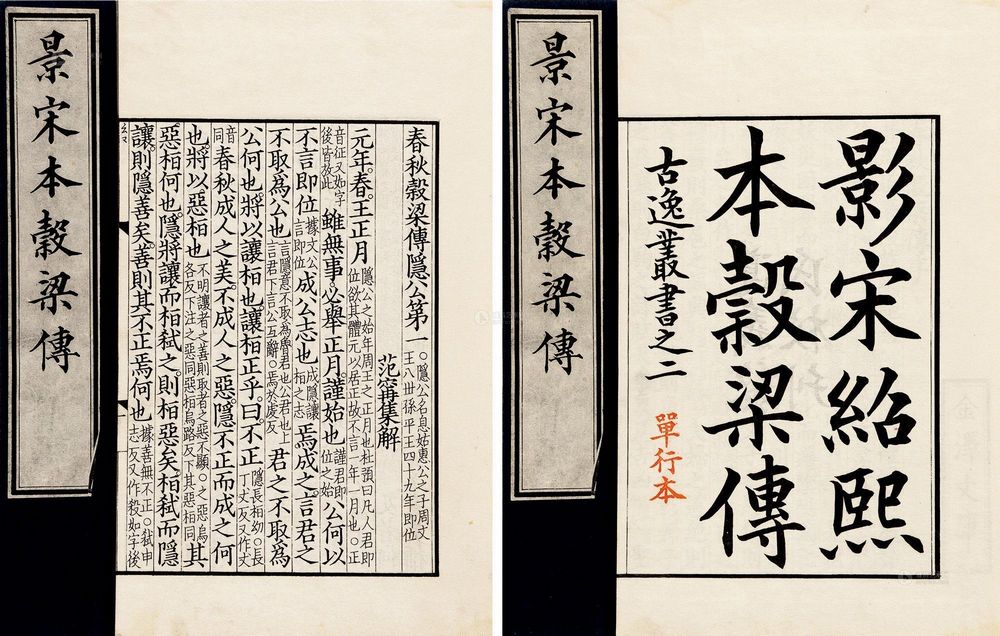 景宋本穀梁傳
春秋穀梁傳隱公第一
〇隱公名息姑惠公之子周文
王八世孫平王四十九年即位
范甯集解
元年。春。王正月
隱公之始年周王之正月也杜預曰凡人君即
位欲其體元以居正故不言一年一月也〇正
音征又如字
後皆放此
雖無事。必舉正月。謹始也
謹君即
位之始
公何以
不言即位
據文公
言即位
成公志也
成隱讓
桓之志
焉成之。言君之
不取為公也
言隱意不取為魯君也公君也上
言君下言公互辭〇焉於虔反
君之不取為
公何也。將以讓桓也。讓桓正乎。曰。不正
隱長桓幼〇長
丁丈反又作丈
音
同
春秋成人之美。不成人之惡。隱不正而成之何
也。將以惡桓也
不明讓者之善則取者之惡不顯〇之惡烏
各反下注之惡同惡桓烏路反下其惡桓同
其
惡桓何也。隱將讓而桓弒之。則桓惡矣。桓弒而隱
讓。則隱善矣。善則其不正焉。何也
據善無不正〇弒申
志反又作殺如字後
景宋本穀梁傳
影宋紹熙
本穀梁傳
古逸叢書之二
單行本